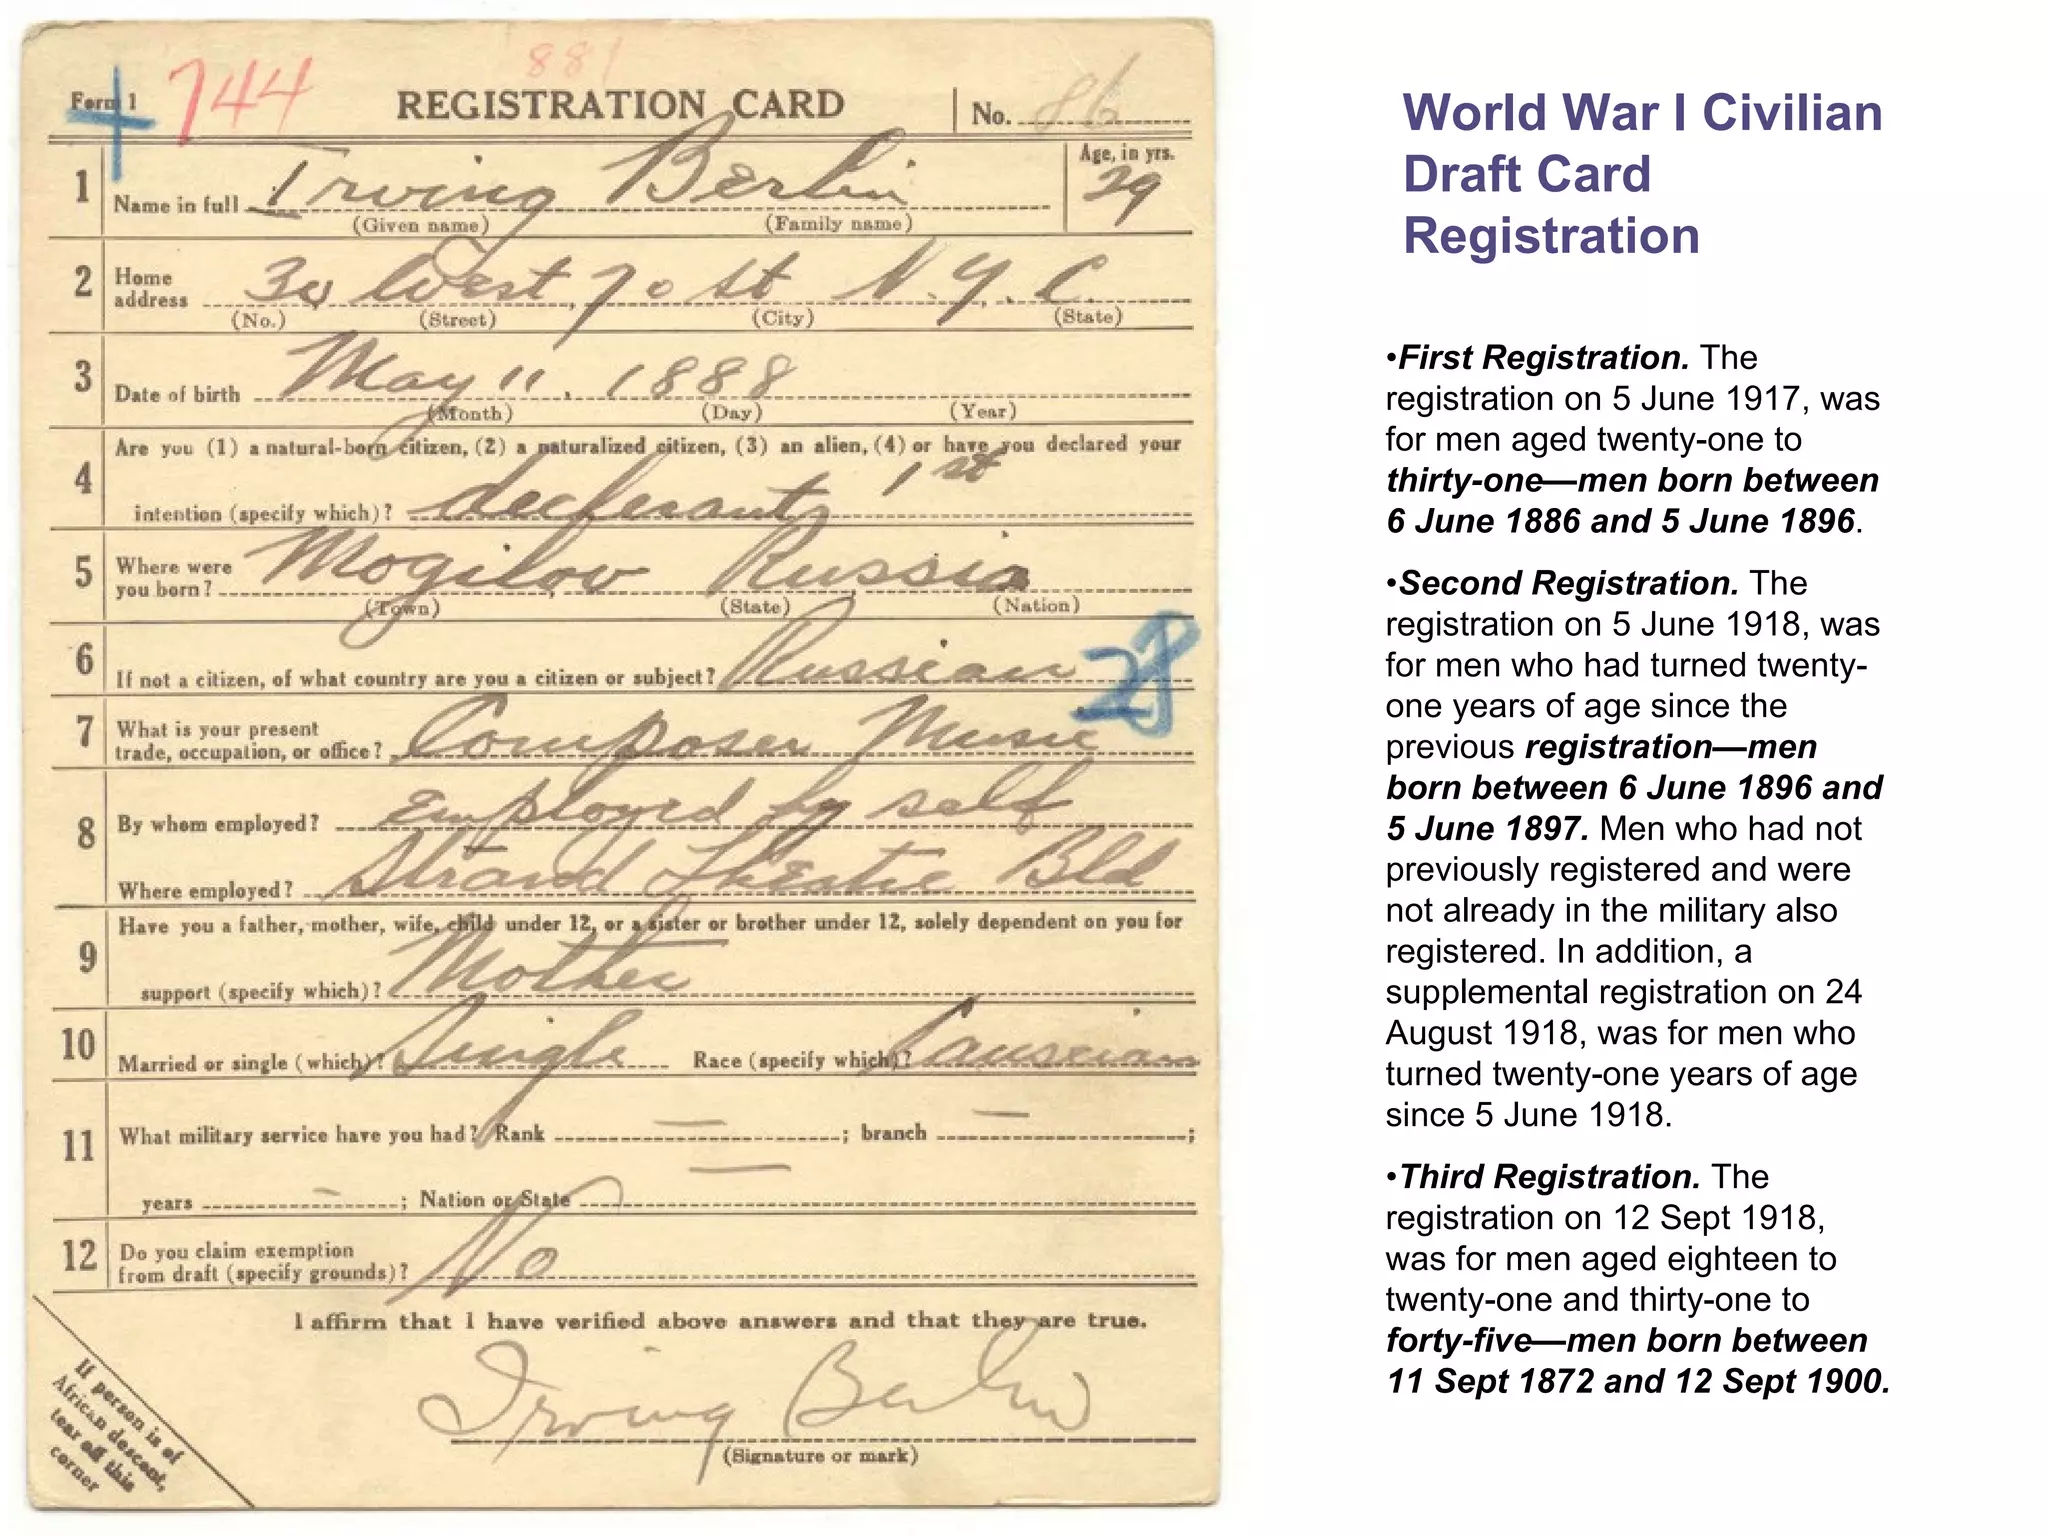 881
Form 1 744 REGISTRATION CARD No. 86
1 Name in full Irving Berlin Age, in yrs. 29
(Given name) (Family name)
2 Home address 30 West 70 St N.Y.C.
(No.) (Street) (City) (State)
3 Date of birth May 11, 1888
(Month) (Day) (Year)
4 Are you (1) a natural-born citizen, (2) a naturalized citizen, (3) an alien, (4) or have you declared your
intention (specify which)? declerant 1st
5 Where were you born? Mogilov Russia
(Town) (State) (Nation)
6 If not a citizen, of what country are you a citizen or subject? Russian
28
7 What is your present
trade, occupation, or office? Composer Music
8 By whom employed? Employed by self
Where employed? Strand Theatre Bld
9 Have you a father, mother, wife, child under 12, or a sister or brother under 12, solely dependent on you for
support (specify which)? Mother
10 Married or single (which)? Single Race (specify which)? Causeian
11 What military service have you had? Rank — ; branch — ;
years — ; Nation or State —
12 Do you claim exemption
from draft (specify grounds)? No
I affirm that I have verified above answers and that they are true.
Irving Berlin
(Signature or mark)
If person is of
African descent,
tear off this
corner
World War I Civilian
Draft Card
Registration
•First Registration. The
registration on 5 June 1917, was
for men aged twenty-one to
thirty-one—men born between
6 June 1886 and 5 June 1896.
•Second Registration. The
registration on 5 June 1918, was
for men who had turned twenty-
one years of age since the
previous registration—men
born between 6 June 1896 and
5 June 1897. Men who had not
previously registered and were
not already in the military also
registered. In addition, a
supplemental registration on 24
August 1918, was for men who
turned twenty-one years of age
since 5 June 1918.
•Third Registration. The
registration on 12 Sept 1918,
was for men aged eighteen to
twenty-one and thirty-one to
forty-five—men born between
11 Sept 1872 and 12 Sept 1900.